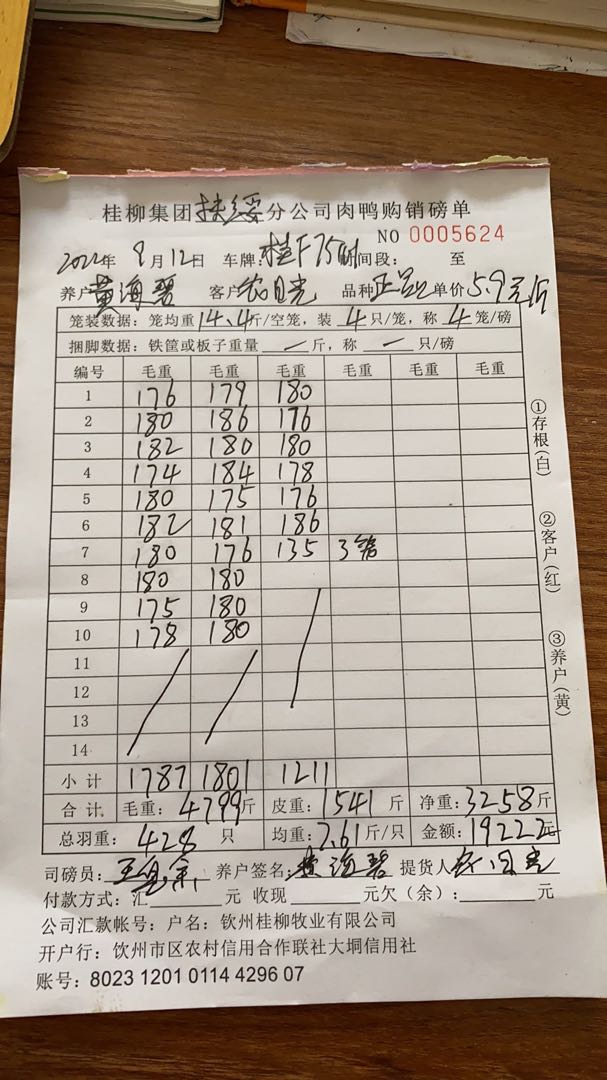 桂柳集团扶绥分公司肉鸭购销磅单
NO 0005624
2022年 9月12日 车牌:桂F75 时间段: 至
养户黄海碧 客户农日光 品种 单价5.9元/斤
笼装数据:笼均重14.4斤/空笼,装4只/笼,称4笼/磅
捆脚数据:铁筐或板子重量 / 斤,称 / 只/磅
编号 毛重 毛重 毛重 毛重 毛重 毛重
1 176 179 180
2 180 186 176
3 182 180 180
4 174 184 178
5 180 175 176
6 182 181 186
7 180 176 135 3笼
8 180 180
9 175 180
10 178 180
11
12
13
14
小计 1787 1801 1211
合计 毛重:4799斤 皮重:1541斤 净重:3258斤
总羽重:428只 均重:7.61斤/只 金额:19222元
司磅员: 养户签名:黄海碧 提货人农日光
付款方式:汇 元 收现 元欠(余): 元
公司汇款帐号:户名:钦州桂柳牧业有限公司
开户行:钦州市区农村信用合作联社大垌信用社
账号:8023 1201 0114 4296 07
①存根(白)
②客户(红)
③养户(黄)